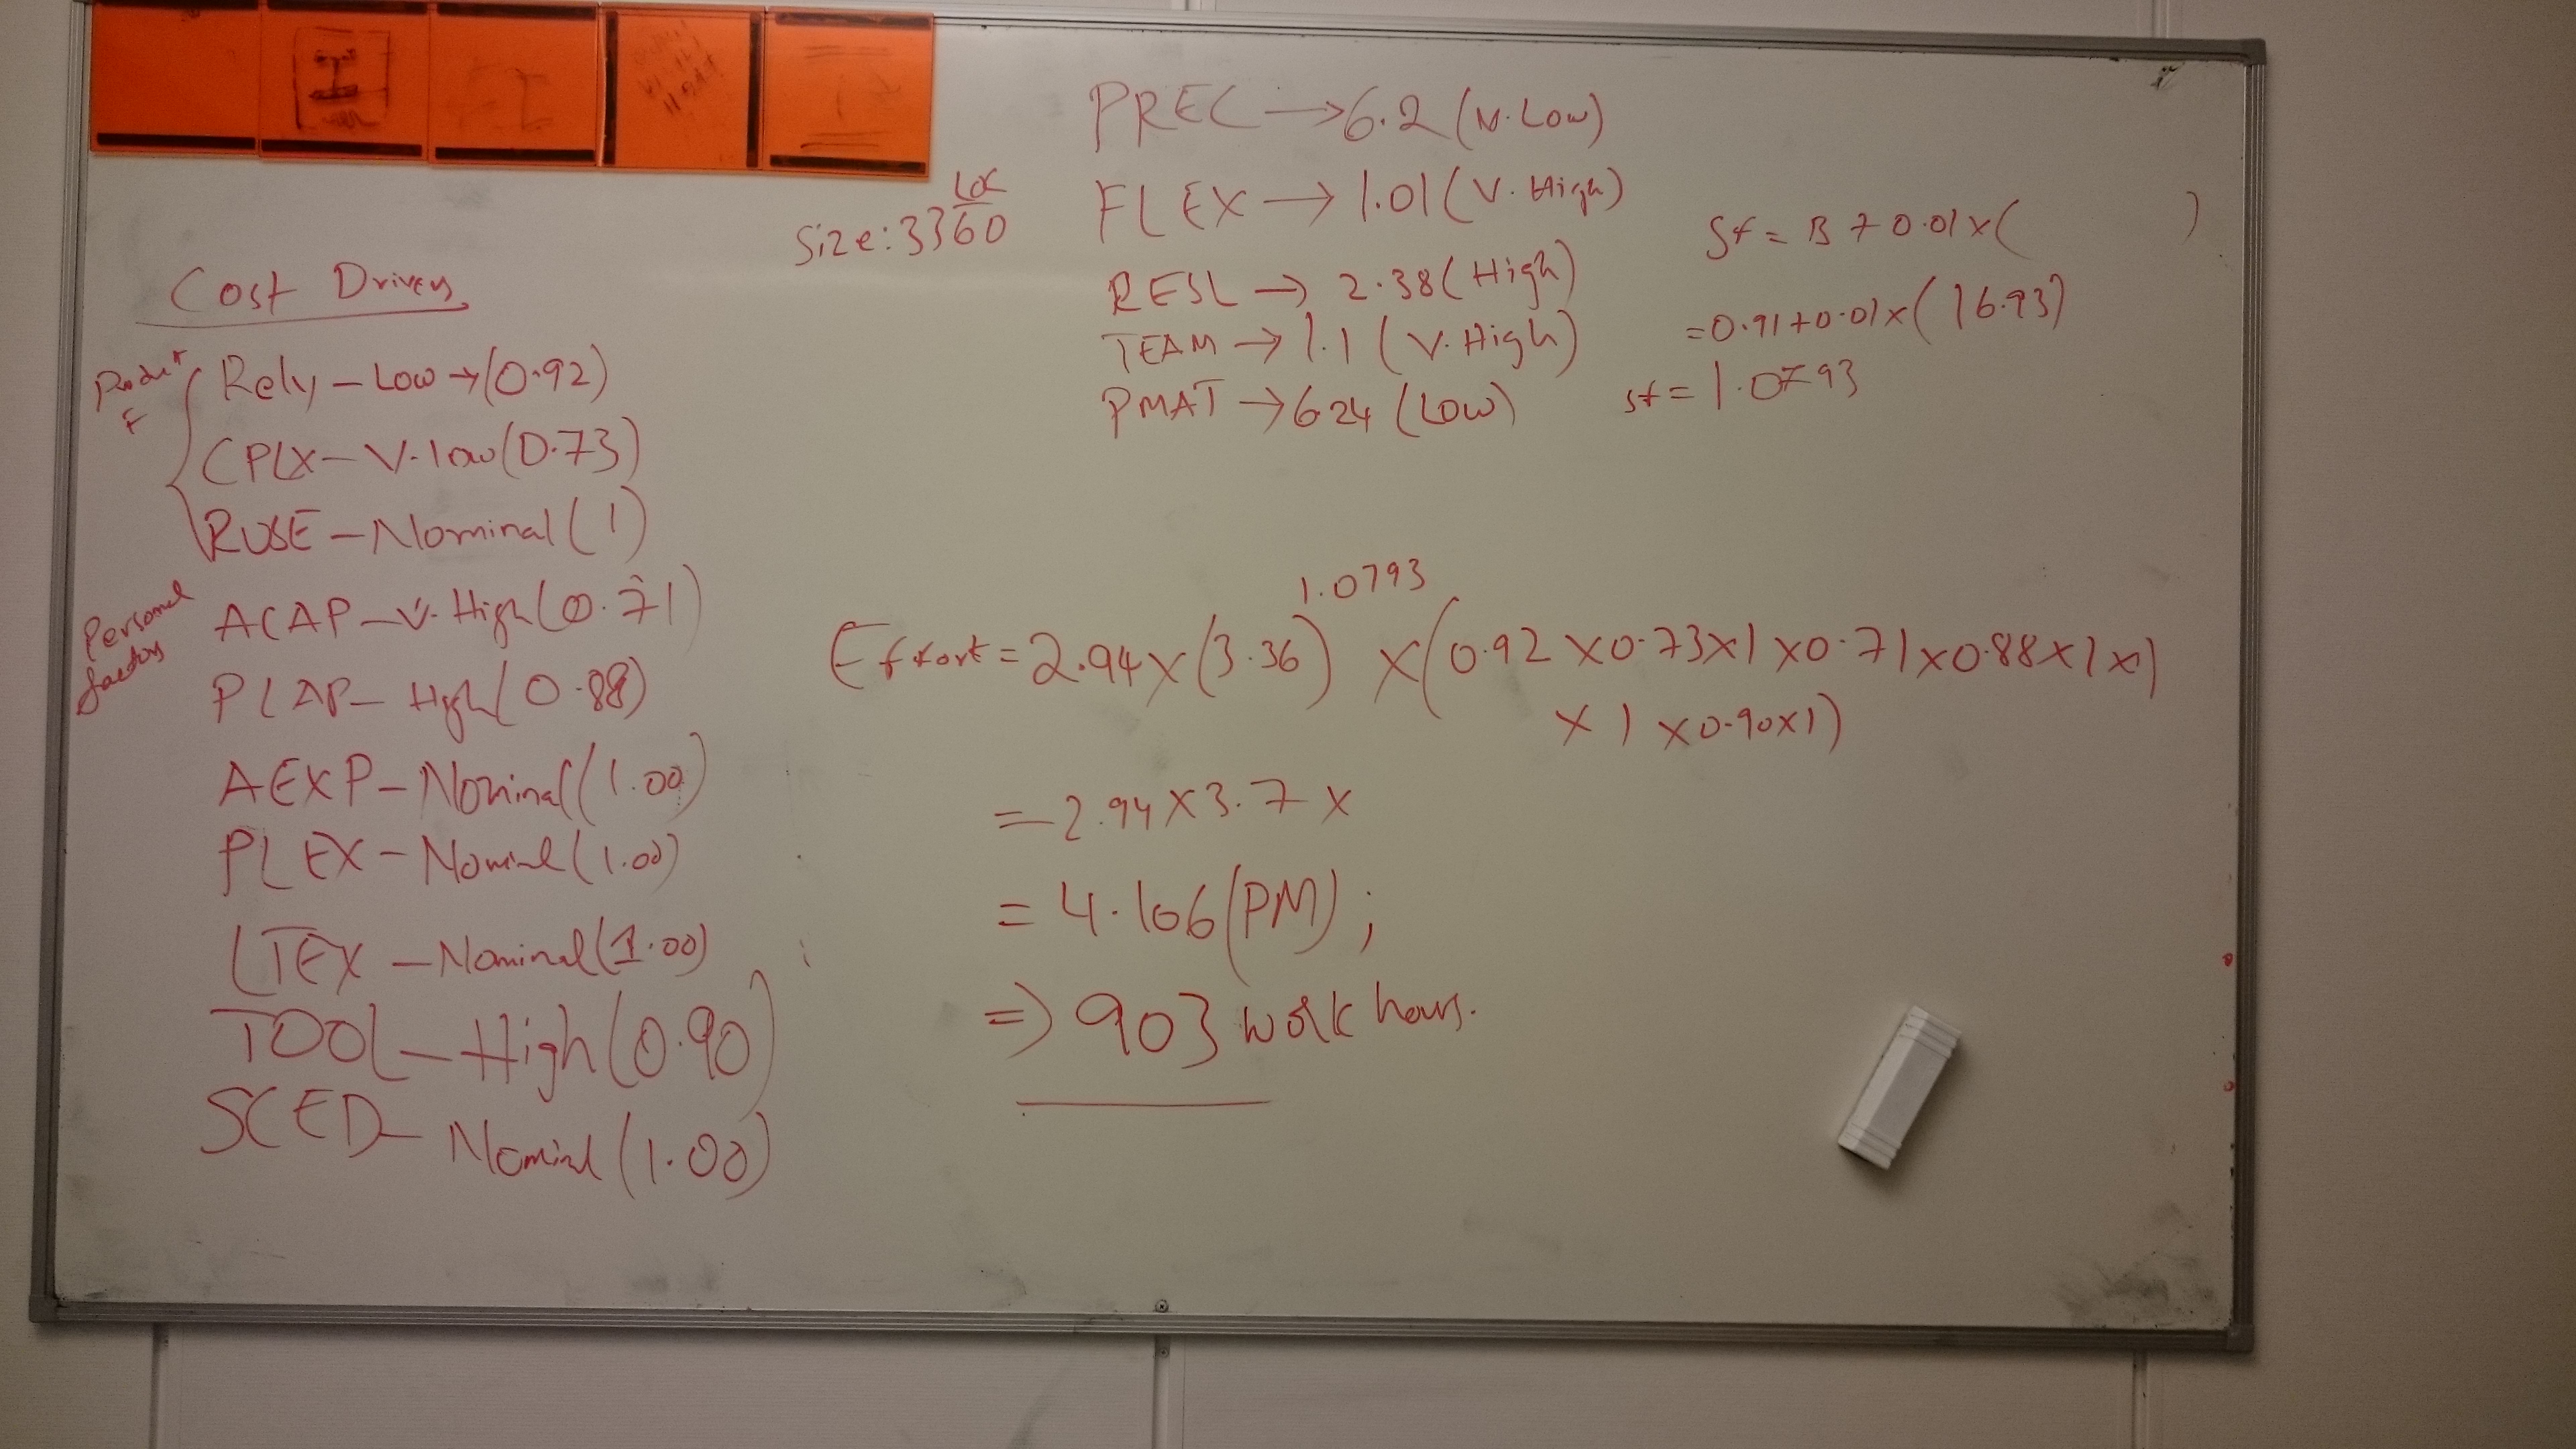 Cost Drivers
Product
F
Rely - Low → (0.92)
CPLX - V.low (0.73)
RUSE - Nominal (1)
Personal
factors
ACAP - V. High (0.71)
PCAP - High (0.88)
AEXP - Nominal (1.00)
PLEX - Nominal (1.00)
LTEX - Nominal (1.00)
TOOL - High (0.90)
SCED - Nominal (1.00)
LOC
Size: 3360
PREC → 6.2 (V. Low)
FLEX → 1.01 (V. High)
RESL → 2.38 (High)
TEAM → 1.1 (V. High)
PMAT → 6.24 (Low)
Sf = B + 0.01 x ( )
= 0.91 + 0.01 x (16.93)
sf = 1.0793
1.0793
Effort = 2.94 x (3.36) x (0.92 x 0.73 x 1 x 0.71 x 0.88 x 1 x 1
x 1 x 0.90 x 1)
= 2.94 x 3.7 x
= 4.106 (PM) ;
⇒ 903 work hours.